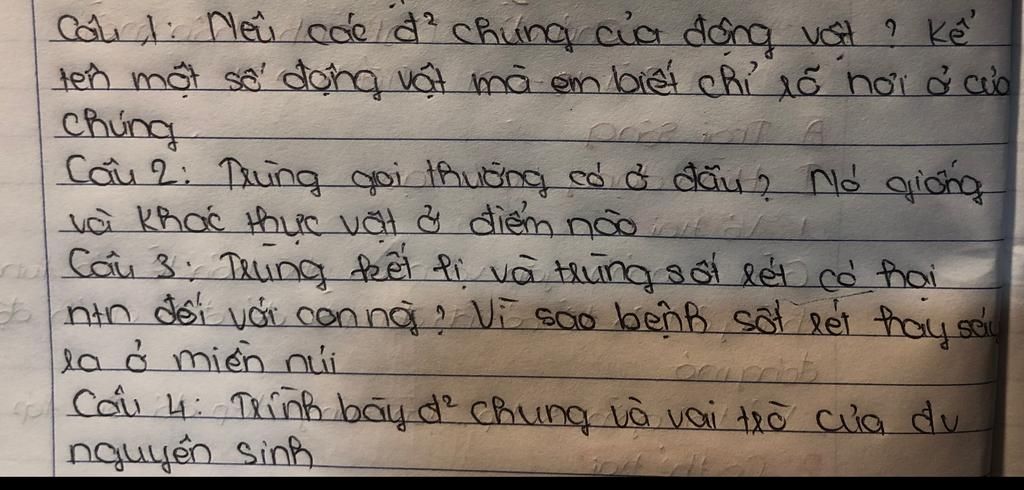 Câu 1: Nêu các đ² chung của động vật? Kể
tên một số động vật mà em biết chỉ rõ nơi ở của
chúng
Câu 2: Trùng goi thường có ở đâu? Nó giống
và khác thực vật ở điểm nào
Câu 3: Trùng kiết lị và trùng sốt rét có hại
ntn đối với con ng? Vì sao bệnh sốt rét hay sảy
ra ở miền núi
Câu 4: Trình bày đ² chung và vai trò của đv
nguyên sinh